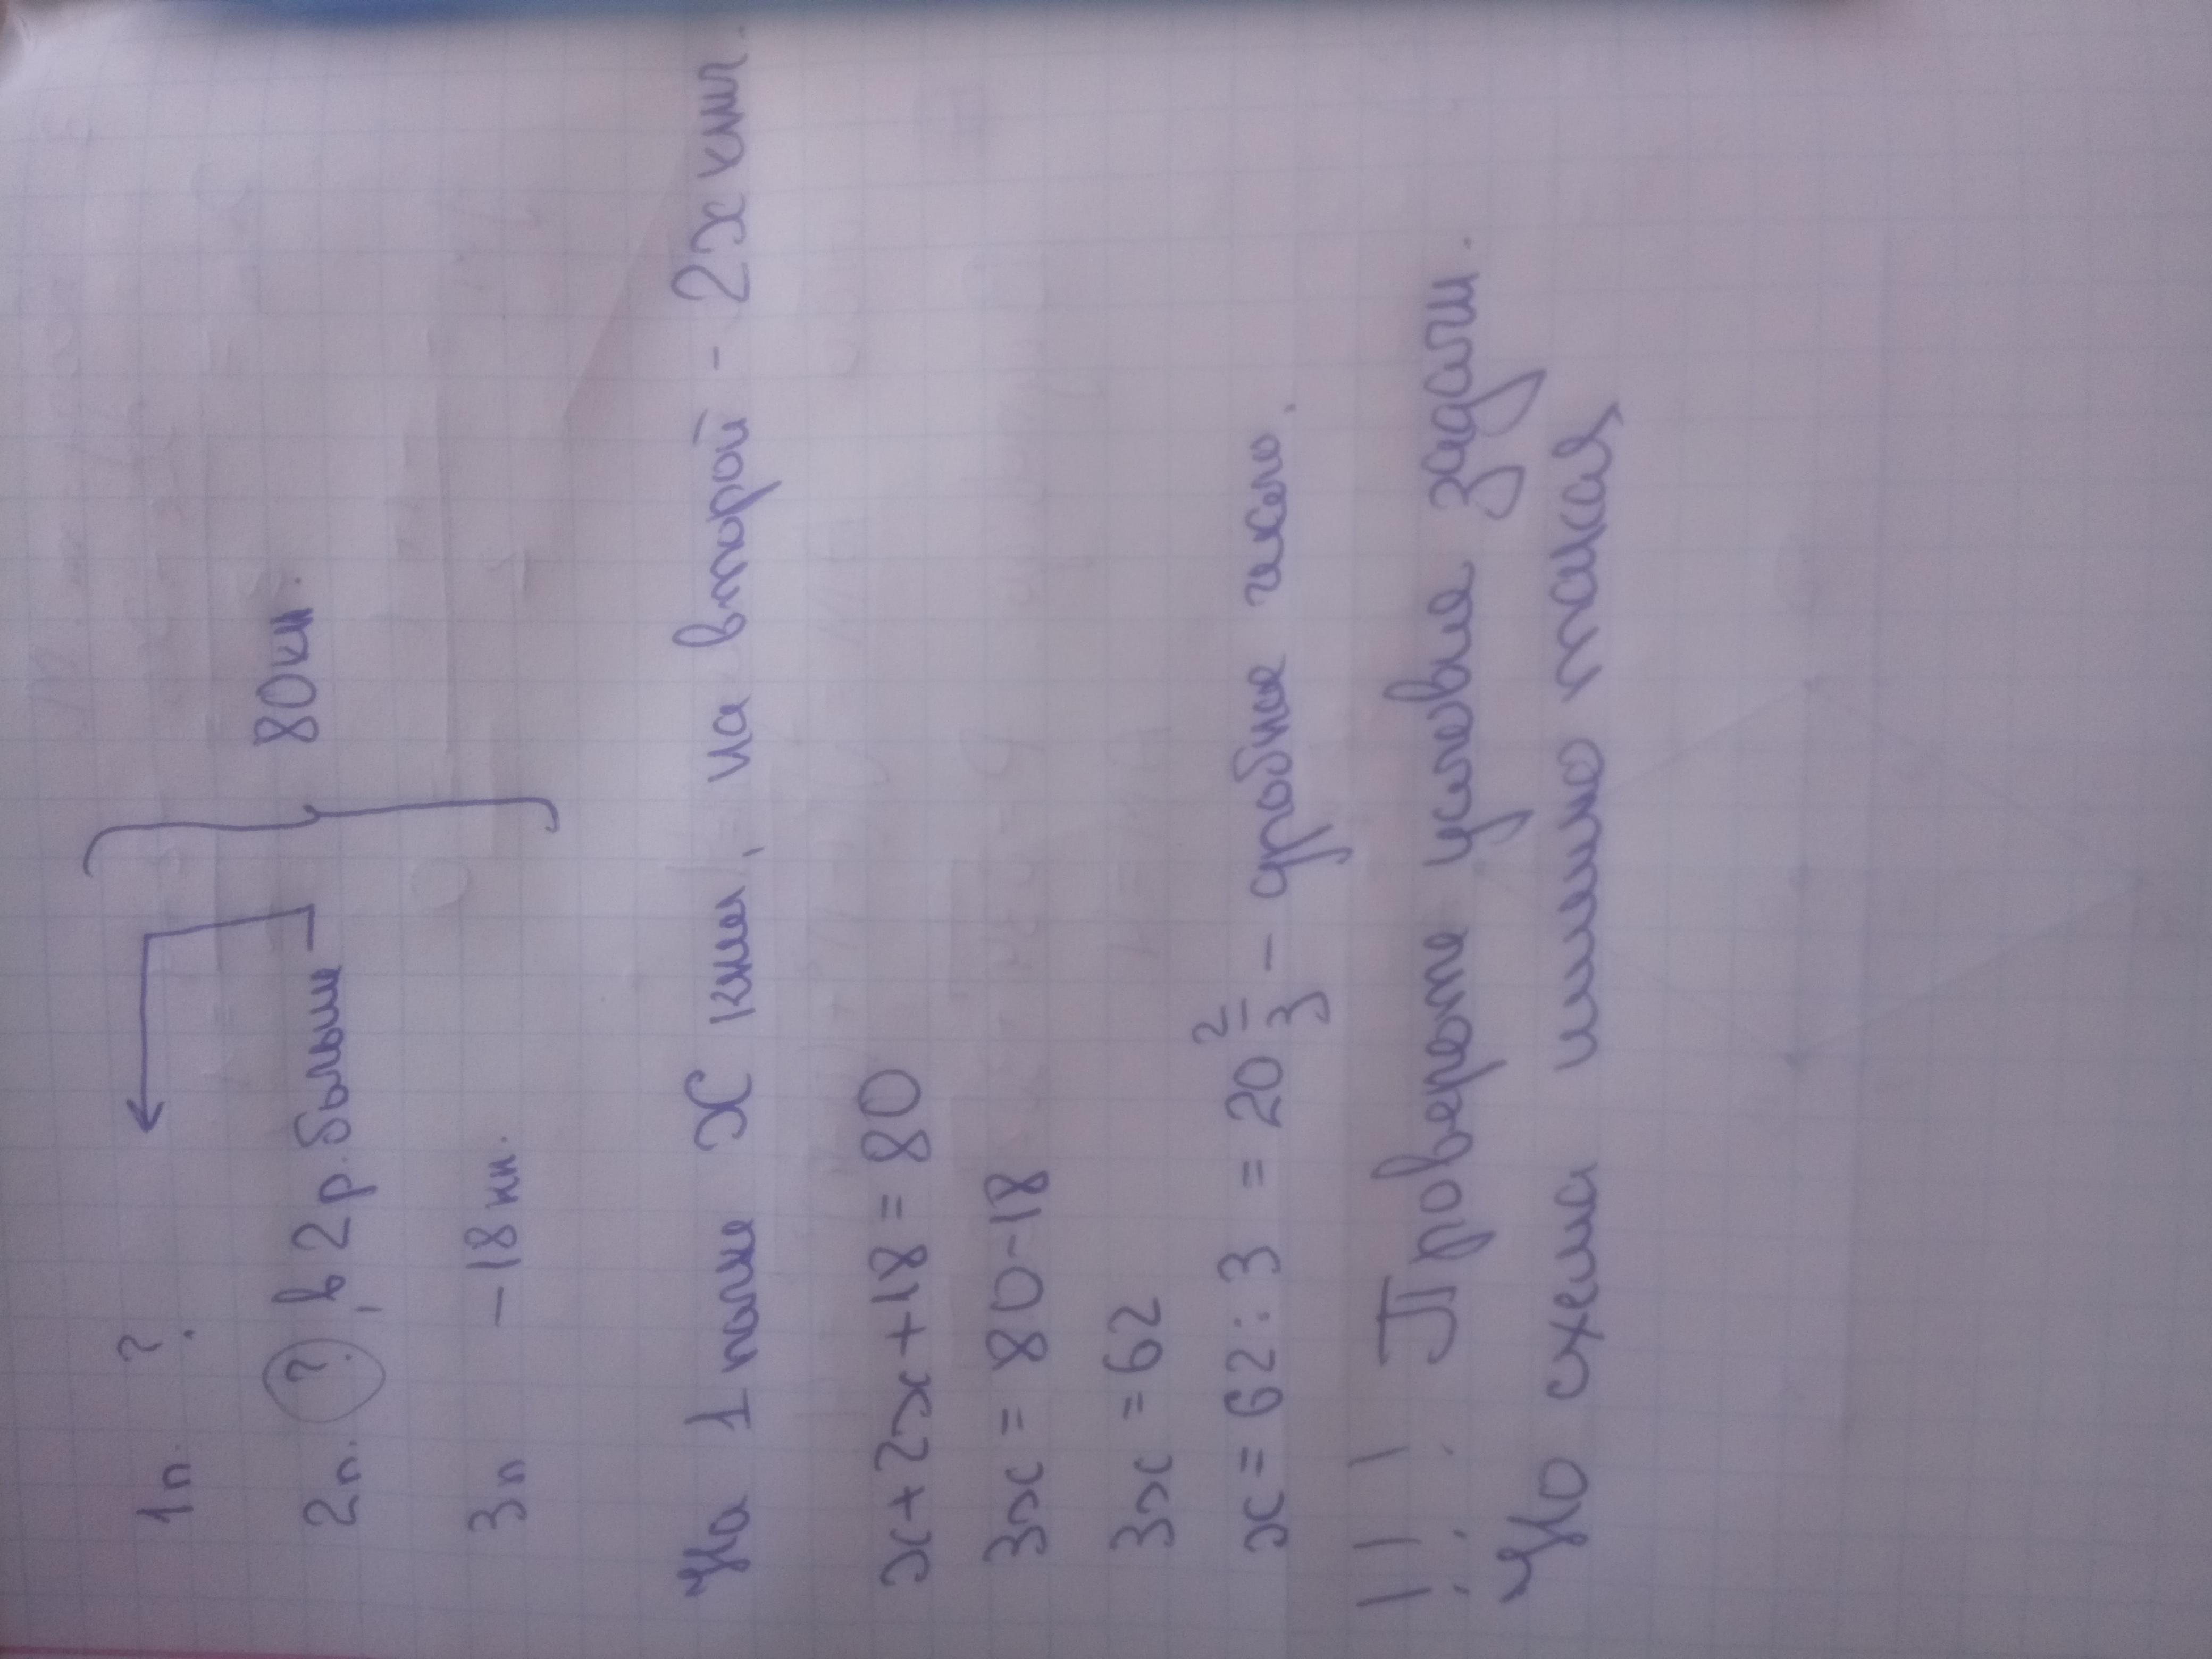 1п. ?
2п. ?, в 2 р. больше
80 кн.
3п - 18 кн.
На 1 полке x книг, на второй - 2x книг.
x + 2x + 18 = 80
3x = 80 - 18
3x = 62
x = 62 : 3 = 20 2/3 - дробное число.
!!! Проверьте условие задачи.
Но схема именно такая